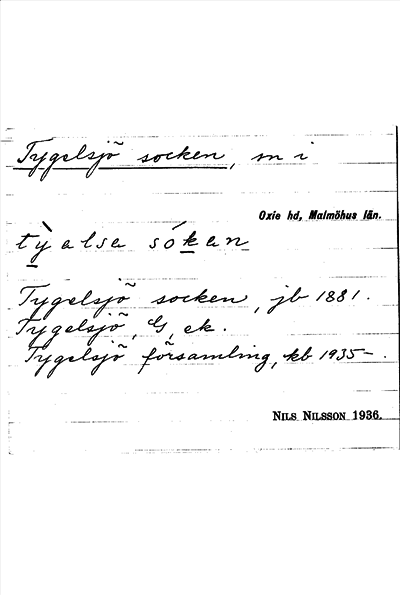 Tygelsjö socken, sn i
Oxie hd, Malmöhus län.
tỳalsa sókan
Tygelsjö socken, jb 1881.
Tygelsjö, G, ek.
Tygelsjö församling, kb 1935– .
NILS NILSSON 1936.